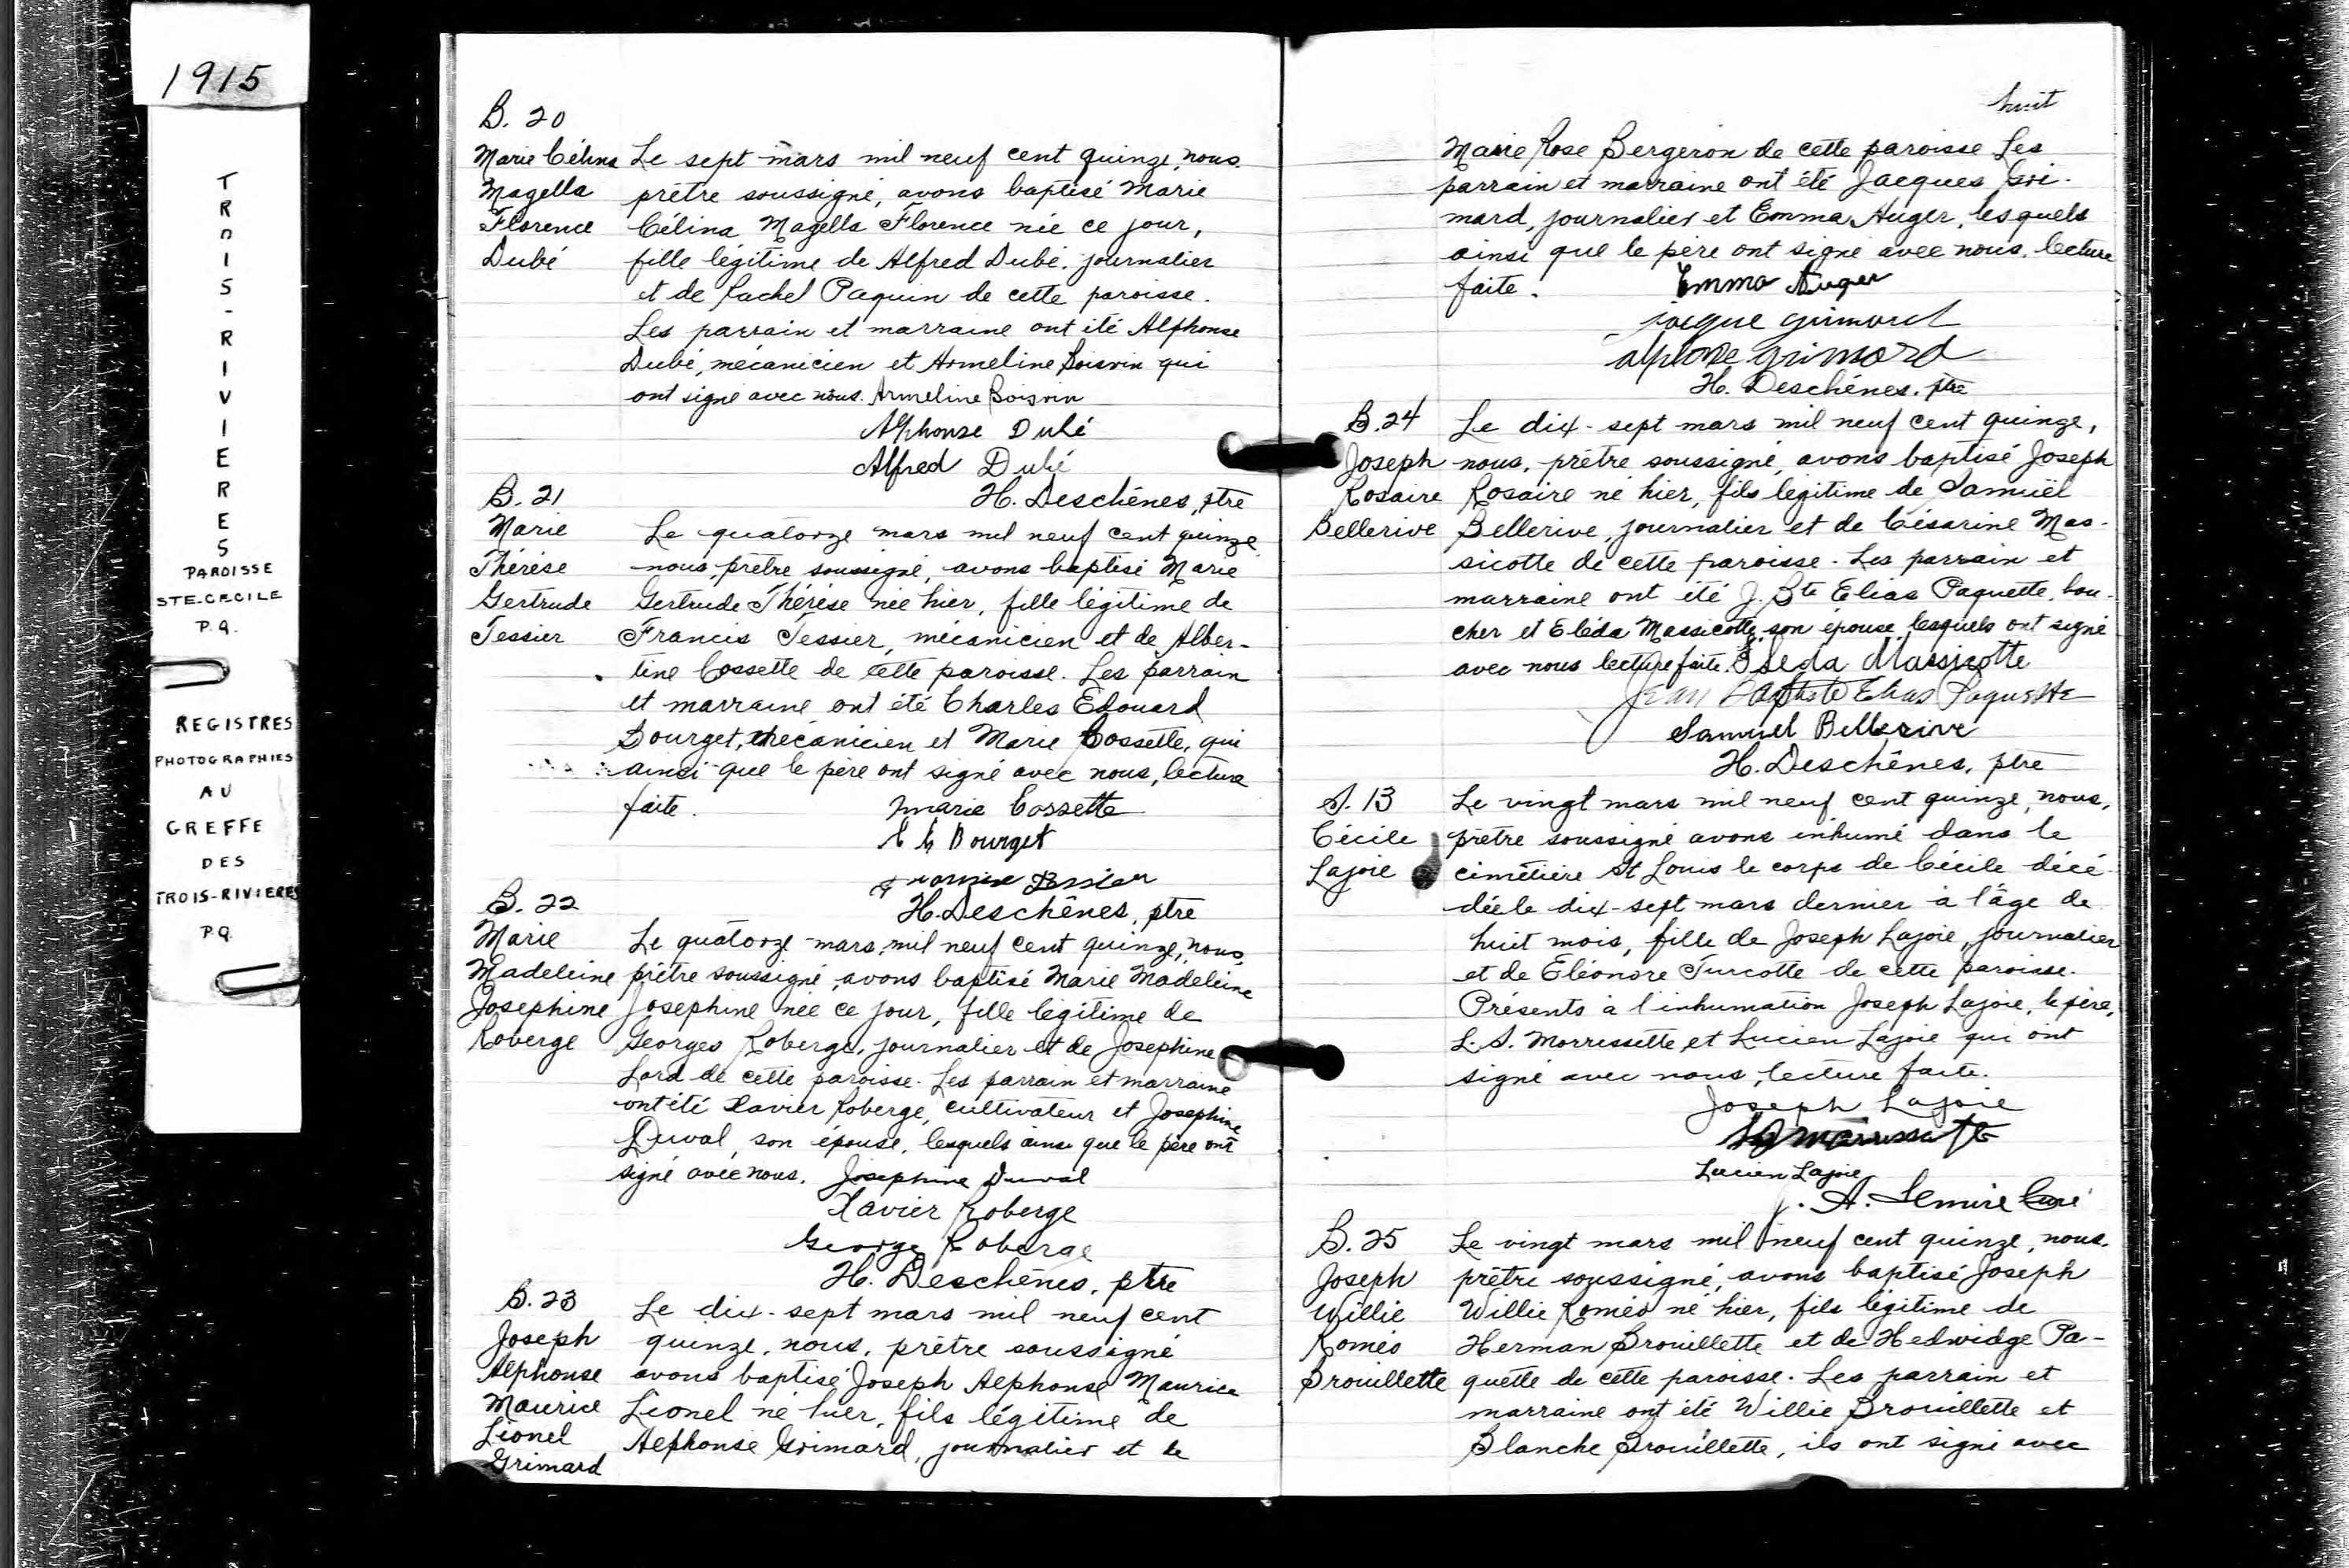 1915
TROIS-RIVIERES
PAROISSE
STE-CECILE
P.Q.
REGISTRES
PHOTOGRAPHIES
AU
GREFFE
DES
TROIS-RIVIERES
P.Q.
B. 20
Marie Célina
Magella
Florence
Dubé
Le sept mars mil neuf cent quinze, nous
prêtre soussigné, avons baptisé Marie
Célina Magella Florence née ce jour,
fille légitime de Alfred Dubé, journalier
et de Rachel Paquin de cette paroisse.
Les parrain et marraine ont été Alphonse
Dubé, mécanicien et Armeline Boisvin qui
ont signé avec nous. Armeline Boisvin
Alphonse Dubé
Alfred Dubé
H. Deschênes, ptre
B. 21
Marie
Thérèse
Gertrude
Tessier
Le quatorze mars mil neuf cent quinze
nous, prêtre soussigné, avons baptisé Marie
Gertrude Thérèse née hier, fille légitime de
Francis Tessier, mécanicien et de Alber-
tine Cossette de cette paroisse. Les parrain
et marraine ont été Charles Edouard
Bourget, mécanicien et Marie Cossette, qui
ainsi que le père ont signé avec nous, lecture
faite. Marie Cossette
Bourget
H. Deschênes, ptre
B. 22
Marie
Madeleine
Josephine
Roberge
Le quatorze mars, mil neuf cent quinze, nous,
prêtre soussigné, avons baptisé Marie Madeleine
Josephine née ce jour, fille légitime de
Georges Roberge, journalier et de Josephine
Lord de cette paroisse. Les parrain et marraine
ont été Xavier Roberge, cultivateur et Josephine
Duval, son épouse, lesquels ainsi que le père ont
signé avec nous. Josephine Duval
Xavier Roberge
George Roberge
H. Deschênes, ptre
B. 23
Joseph
Alphonse
Maurice
Lionel
Grimard
Le dix-sept mars mil neuf cent
quinze, nous, prêtre soussigné
avons baptisé Joseph Alphonse Maurice
Lionel né hier, fils légitime de
Alphonse Grimard, journalier et de
huit
Marie Rose Bergeron de cette paroisse Les
parrain et marraine ont été Jacques Gri-
mard, journalier et Emma Auger, lesquels
ainsi que le père ont signé avec nous, lecture
faite. Emma Auger
jacque grimard
alphonse grimard
H. Deschênes, ptre
B. 24
Joseph
Rosaire
Bellerive
Le dix-sept mars mil neuf cent quinze,
nous, prêtre soussigné, avons baptisé Joseph
Rosaire né hier, fils légitime de Samuël
Bellerive, journalier et de Césarine Mas-
sicotte de cette paroisse. Les parrain et
marraine ont été J. Bte Elias Paquette, bou-
cher et Eléda Massicotte, son épouse, lesquels ont signé
avec nous lecture faite. Eléda Massicotte
Jean Baptiste Elias Paquette
Samuel Bellerive
H. Deschênes, ptre
S. 13
Cécile
Lajoie
Le vingt mars mil neuf cent quinze, nous,
prêtre soussigné avons inhumé dans le
cimetière St Louis le corps de Cécile décé-
dée le dix-sept mars dernier à l'âge de
huit mois, fille de Joseph Lajoie, journalier
et de Eléonore Turcotte de cette paroisse.
Présents à l'inhumation Joseph Lajoie, le père,
L. S. Morrissette et Lucien Lajoie qui ont
signé avec nous, lecture faite.
Joseph Lajoie
Morrissette
Lucien Lajoie
J. A. Lemire Curé
B. 25
Joseph
Willie
Roméo
Brouillette
Le vingt mars mil neuf cent quinze, nous,
prêtre soussigné, avons baptisé Joseph
Willie Roméo né hier, fils légitime de
Herman Brouillette et de Hedwidge Pa-
quette de cette paroisse. Les parrain et
marraine ont été Willie Brouillette et
Blanche Brouillette, ils ont signé avec